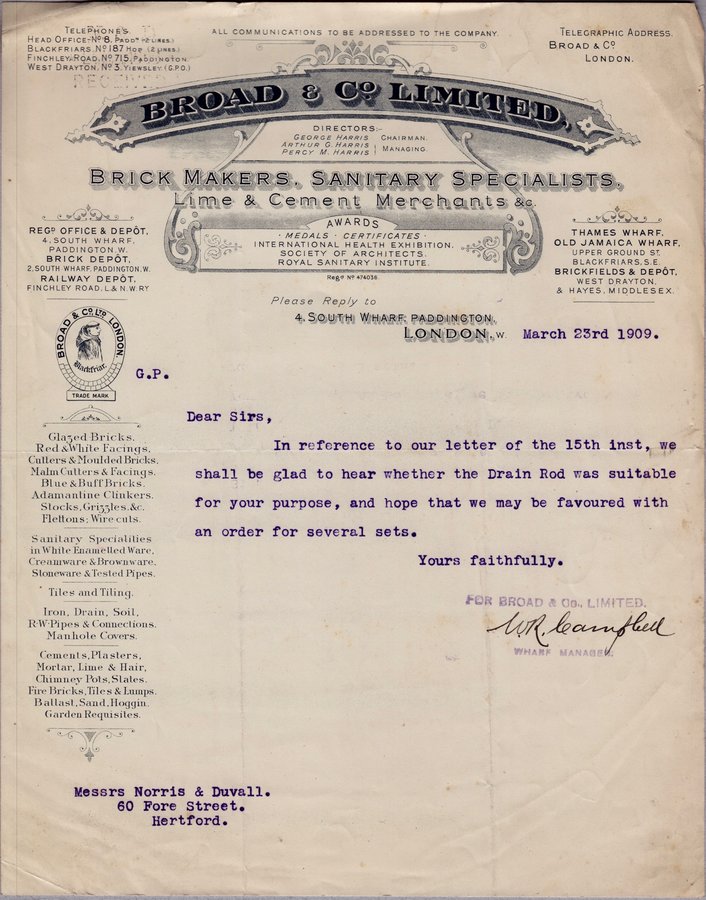 TELEPHONE'S
HEAD OFFICE: No 8, PADDn (2 LINES.)
BLACKFRIARS, No 187 HOP (2 LINES.)
FINCHLEY ROAD, No 715, PADDINGTON.
WEST DRAYTON, No 3, YIEWSLEY. (G.P.O.)
ALL COMMUNICATIONS TO BE ADDRESSED TO THE COMPANY.
TELEGRAPHIC ADDRESS.
BROAD & Co
LONDON.
BROAD & Co LIMITED,
DIRECTORS:-
GEORGE HARRIS CHAIRMAN.
ARTHUR G. HARRIS
PERCY M. HARRIS MANAGING.
BRICK MAKERS, SANITARY SPECIALISTS,
LIME & CEMENT MERCHANTS &c.
AWARDS
· MEDALS · CERTIFICATES ·
INTERNATIONAL HEALTH EXHIBITION.
SOCIETY OF ARCHITECTS.
ROYAL SANITARY INSTITUTE.
Regd No 474036.
REGd OFFICE & DEPÔT,
4, SOUTH WHARF,
PADDINGTON, W.
BRICK DEPÔT,
2, SOUTH WHARF, PADDINGTON, W.
RAILWAY DEPÔT,
FINCHLEY ROAD, L & N.W. RY
THAMES WHARF,
OLD JAMAICA WHARF,
UPPER GROUND ST.
BLACKFRIARS, S.E.
BRICKFIELDS & DEPÔT,
WEST DRAYTON,
& HAYES, MIDDLESEX.
Please Reply to
4, SOUTH WHARF, PADDINGTON,
LONDON, W. March 23rd 1909.
BROAD & Co LTD LONDON.
Blackfriar.
TRADE MARK
G.P.
Dear Sirs,
In reference to our letter of the 15th inst, we
shall be glad to hear whether the Drain Rod was suitable
for your purpose, and hope that we may be favoured with
an order for several sets.
Yours faithfully.
FOR BROAD & Co., LIMITED.
W.R. Campbell
WHARF MANAGER.
Glazed Bricks.
Red & White Facings,
Cutters & Moulded Bricks.
Malm Cutters & Facings.
Blue & Buff Bricks.
Adamantine Clinkers.
Stocks, Grizzles, &c.
Flettons; Wire cuts.
Sanitary Specialities
in White Enamelled Ware,
Creamware & Brownware,
Stoneware & Tested Pipes.
Tiles and Tiling.
Iron, Drain, Soil,
R·W·Pipes & Connections.
Manhole Covers.
Cements, Plasters,
Mortar, Lime & Hair,
Chimney Pots, Slates.
Fire Bricks, Tiles & Lumps.
Ballast, Sand, Hoggin.
Garden Requisites.
Messrs Norris & Duvall.
60 Fore Street.
Hertford.